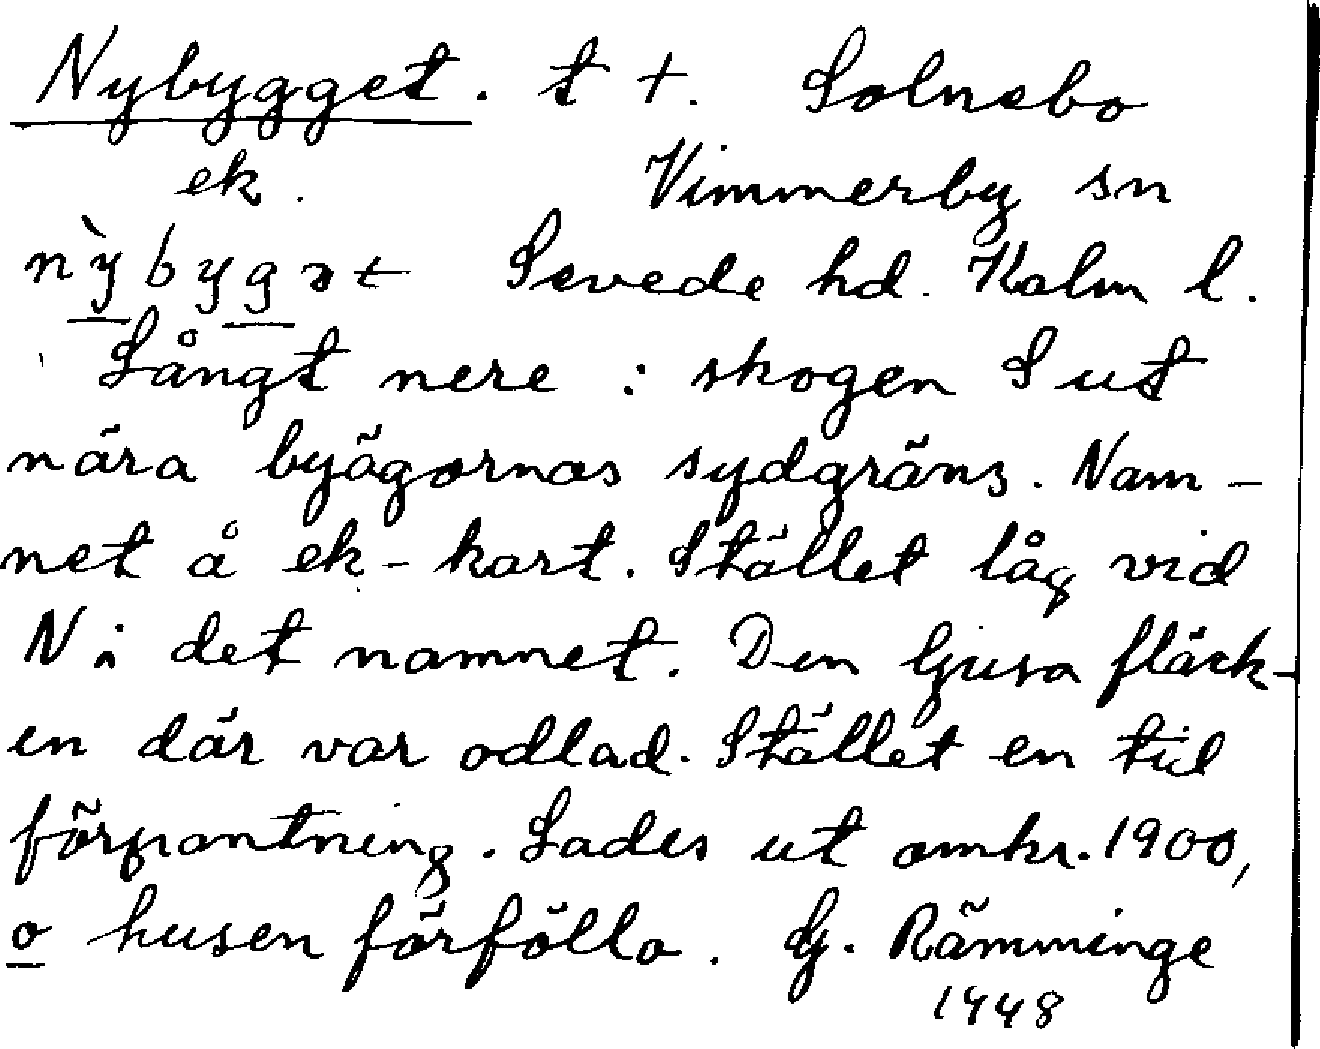 Nybygget. t +. Solnebo
ek. Vimmerby sn
nỳbygət Sevede hd. Kalm l.
Långt nere i skogen S ut
nära byägornas sydgräns. Nam-
net å ek-kart. Stället låg vid
N i det namnet. Den ljusa fläck-
en där var odlad. Stället en tid
förpantning. Lades ut omkr. 1900,
o husen förföllo. G. Rämminge
1948